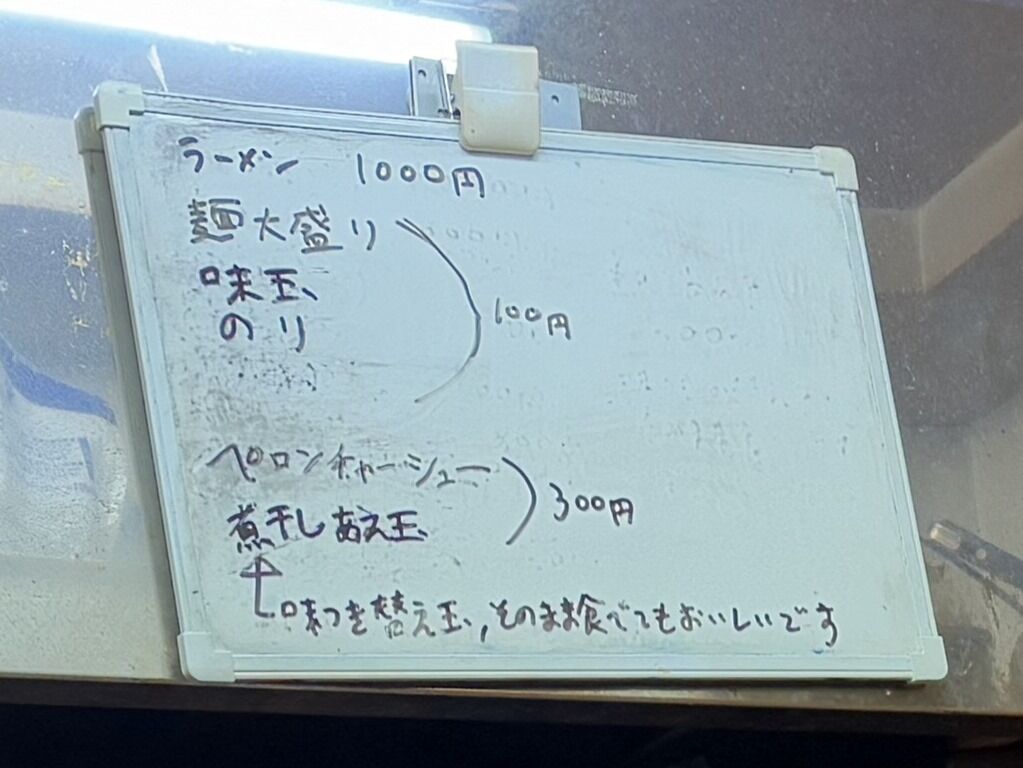 ラーメン 1000円
麺大盛り
味玉
のり
100円
ペロンチャーシュー
煮干しあえ玉
300円
味つき替え玉,そのまま食べてもおいしいです